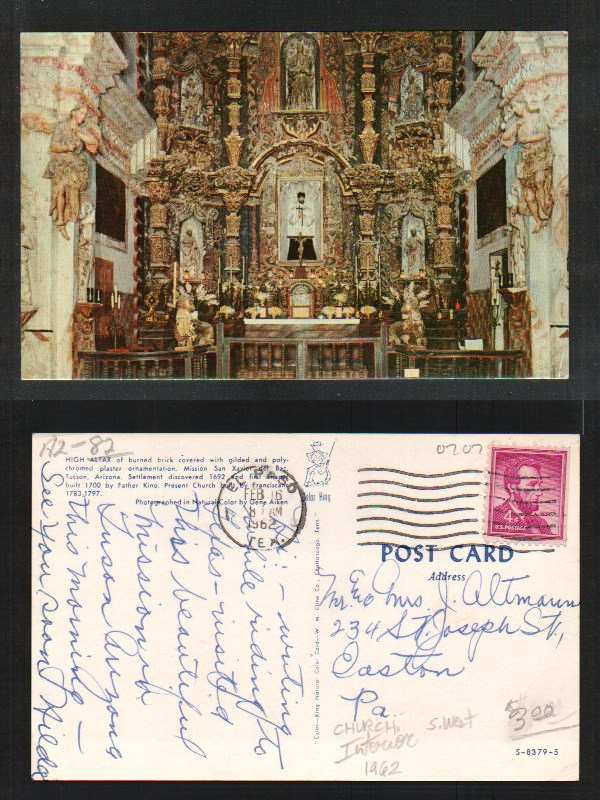 A2-87
HIGH ALTAR of burned brick covered with gilded and poly-
chromed plaster ornamentation. Mission San Xavier del Bac,
Tucson, Arizona. Settlement discovered 1692 and first
built 1700 by Father Kino. Present Church built by Franciscans
1783-1797.
Photographed in Natural Color by Gene Aiken
Color King
FEB 16
8 AM
1962
TEX.
4¢
U.S. POSTAGE
0707
writing
while riding to
visited
this beautiful
mission in
Tuson Arizona
this morning —
See you soon Hilda
Color-King Natural Color Card — W. M. Cline Co., Chattanooga, Tenn.
POST CARD
Address
Mr & Mrs. J. Altmann
234 St. Joseph St.,
Easton
Pa.
CHURCH S. West
Interior
1962
$3.00
S-8379-5